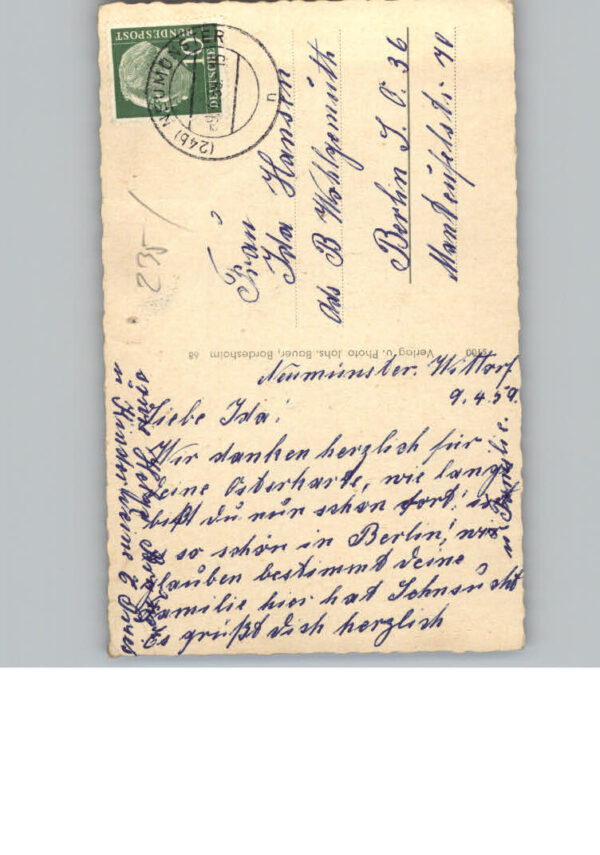 DEUTSCHE
BUNDESPOST
10
(24b) NEUMÜNSTER
u
235
Frau
Ida Hansen
B Wohlgemuth
Berlin S.O. 36
Manteufelstr. 70
Verlag u. Photo Johs. Bauer, Bordesholm 68
Neumünster. Wittorf
9.4.59.
Liebe Ida!
Wir danken herzlich für
deine Osterkarte, wie lang
bist du nur schon fort! is
so schön in Berlin! wir
glauben bestimmt deine
Familie hier hat Sehnsucht
u. Familie.
Es grüßt dich herzlich